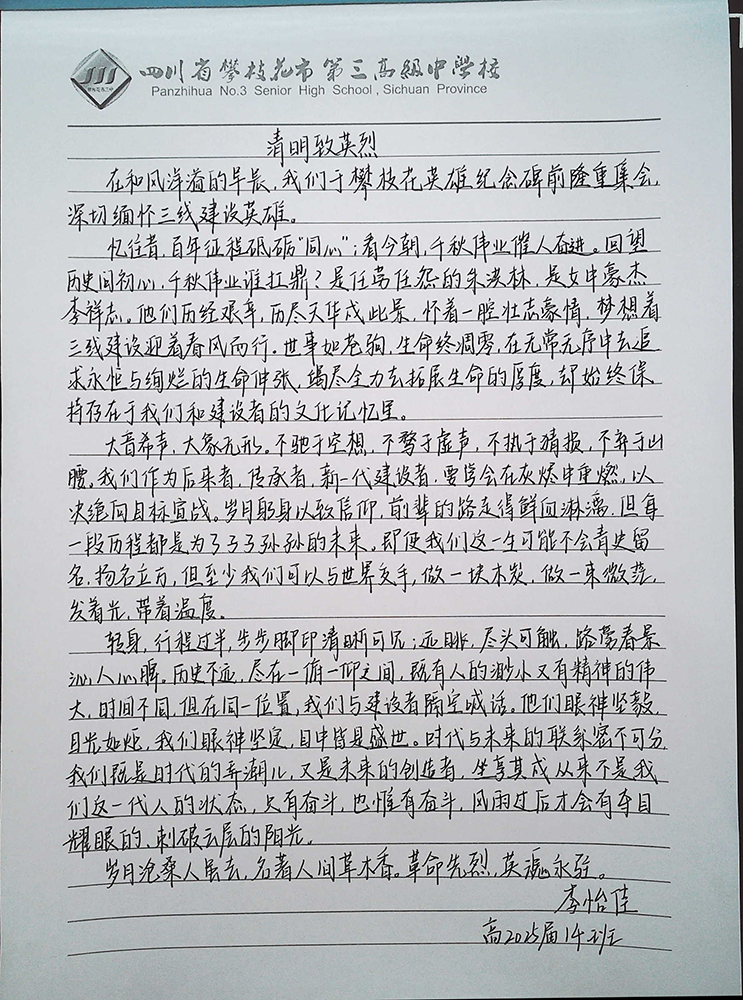 四川省攀枝花市第三高级中学校
Panzhihua No.3 Senior High School, Sichuan Province
清明致英烈
在和风洋溢的早晨，我们于攀枝花英雄纪念碑前隆重集会，
深切缅怀三线建设英雄。
忆往昔，百年征程砥砺“同心”；看今朝，千秋伟业催人奋进。回望
历史问初心，千秋伟业谁扛鼎？是任劳任怨的朱洪林，是女中豪杰
李祥志。他们历经艰辛，历尽天华成此景，怀着一腔壮志豪情，梦想着
三线建设迎着春风而行。世事如苍狗，生命终凋零，在无常无序中去追
求永恒与绚烂的生命伸张，竭尽全力去拓展生命的厚度，却始终保
持存在于我们和建设者的文化记忆里。
大音希声，大象无形。不驰于空想，不骛于虚声，不执于猜报，不弃于山
腰。我们作为后来者，传承者，新一代建设者，要学会在灰烬中重燃，以
决绝向目标宣战。岁月躬身以致信仰，前辈的路走得鲜血淋漓，但每
一段历程都是为了子子孙孙的未来。即使我们这一生可能不会青史留
名，扬名立万，但至少我们可以与世界交手，做一块木炭，做一束微芒，
发着光，带着温度。
转身，行程过半，步步脚印清晰可见；远眺，尽头可触，路旁春景
沁人心脾。历史不远，尽在一俯一仰之间，既有人的渺小又有精神的伟
大，时间不同，但在同一位置，我们与建设者隔空喊话。他们眼神坚毅，
目光如炬，我们眼神坚定，目中皆是盛世。时代与未来的联系密不可分，
我们既是时代的弄潮儿，又是未来的创造者，坐享其成从来不是我
们这一代人的状态，只有奋斗，也惟有奋斗，风雨过后才会有夺目
耀眼的，刺破云层的阳光。
岁月沧桑人虽去，名著人间草木香。革命先烈，英魂永驻。
李怡佳
高2025届14班